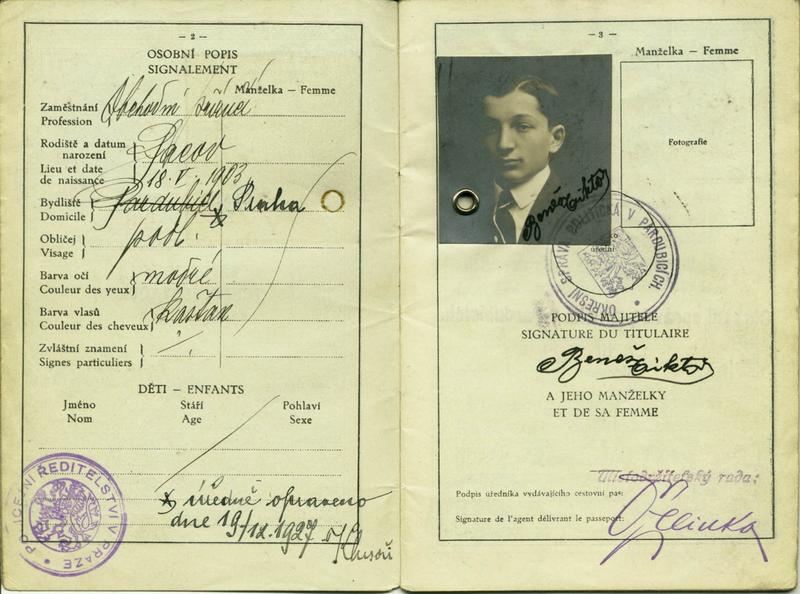 — 2 —
OSOBNÍ POPIS
SIGNALEMENT
Manželka — Femme
Zaměstnání
Profession
Obchodní
Rodiště a datum
narození
Lieu et date
de naissance
18. V. 1903
Bydliště
Domicile
Pardubice
x Praha
Obličej
Visage
podl.
Barva očí
Couleur des yeux
modré
Barva vlasů
Couleur des cheveux
kaštan
Zvláštní znamení
Signes particuliers
DĚTI — ENFANTS
Jméno
Nom
Stáří
Age
Pohlaví
Sexe
x úředně opraveno
dne 19/12.1927
POLICEJNÍ ŘEDITELSTVÍ V PRAZE
— 3 —
Manželka — Femme
Fotografie
Beneš Viktor
úřední
OKRESNÍ SPRÁVA POLITICKÁ V PARDUBICÍCH
PODPIS MAJITELE
SIGNATURE DU TITULAIRE
Beneš Viktor
A JEHO MANŽELKY
ET DE SA FEMME
Místodržitelský rada:
Podpis úředníka vydávajícího cestovní pas:
Signature de l'agent délivrant le passeport: